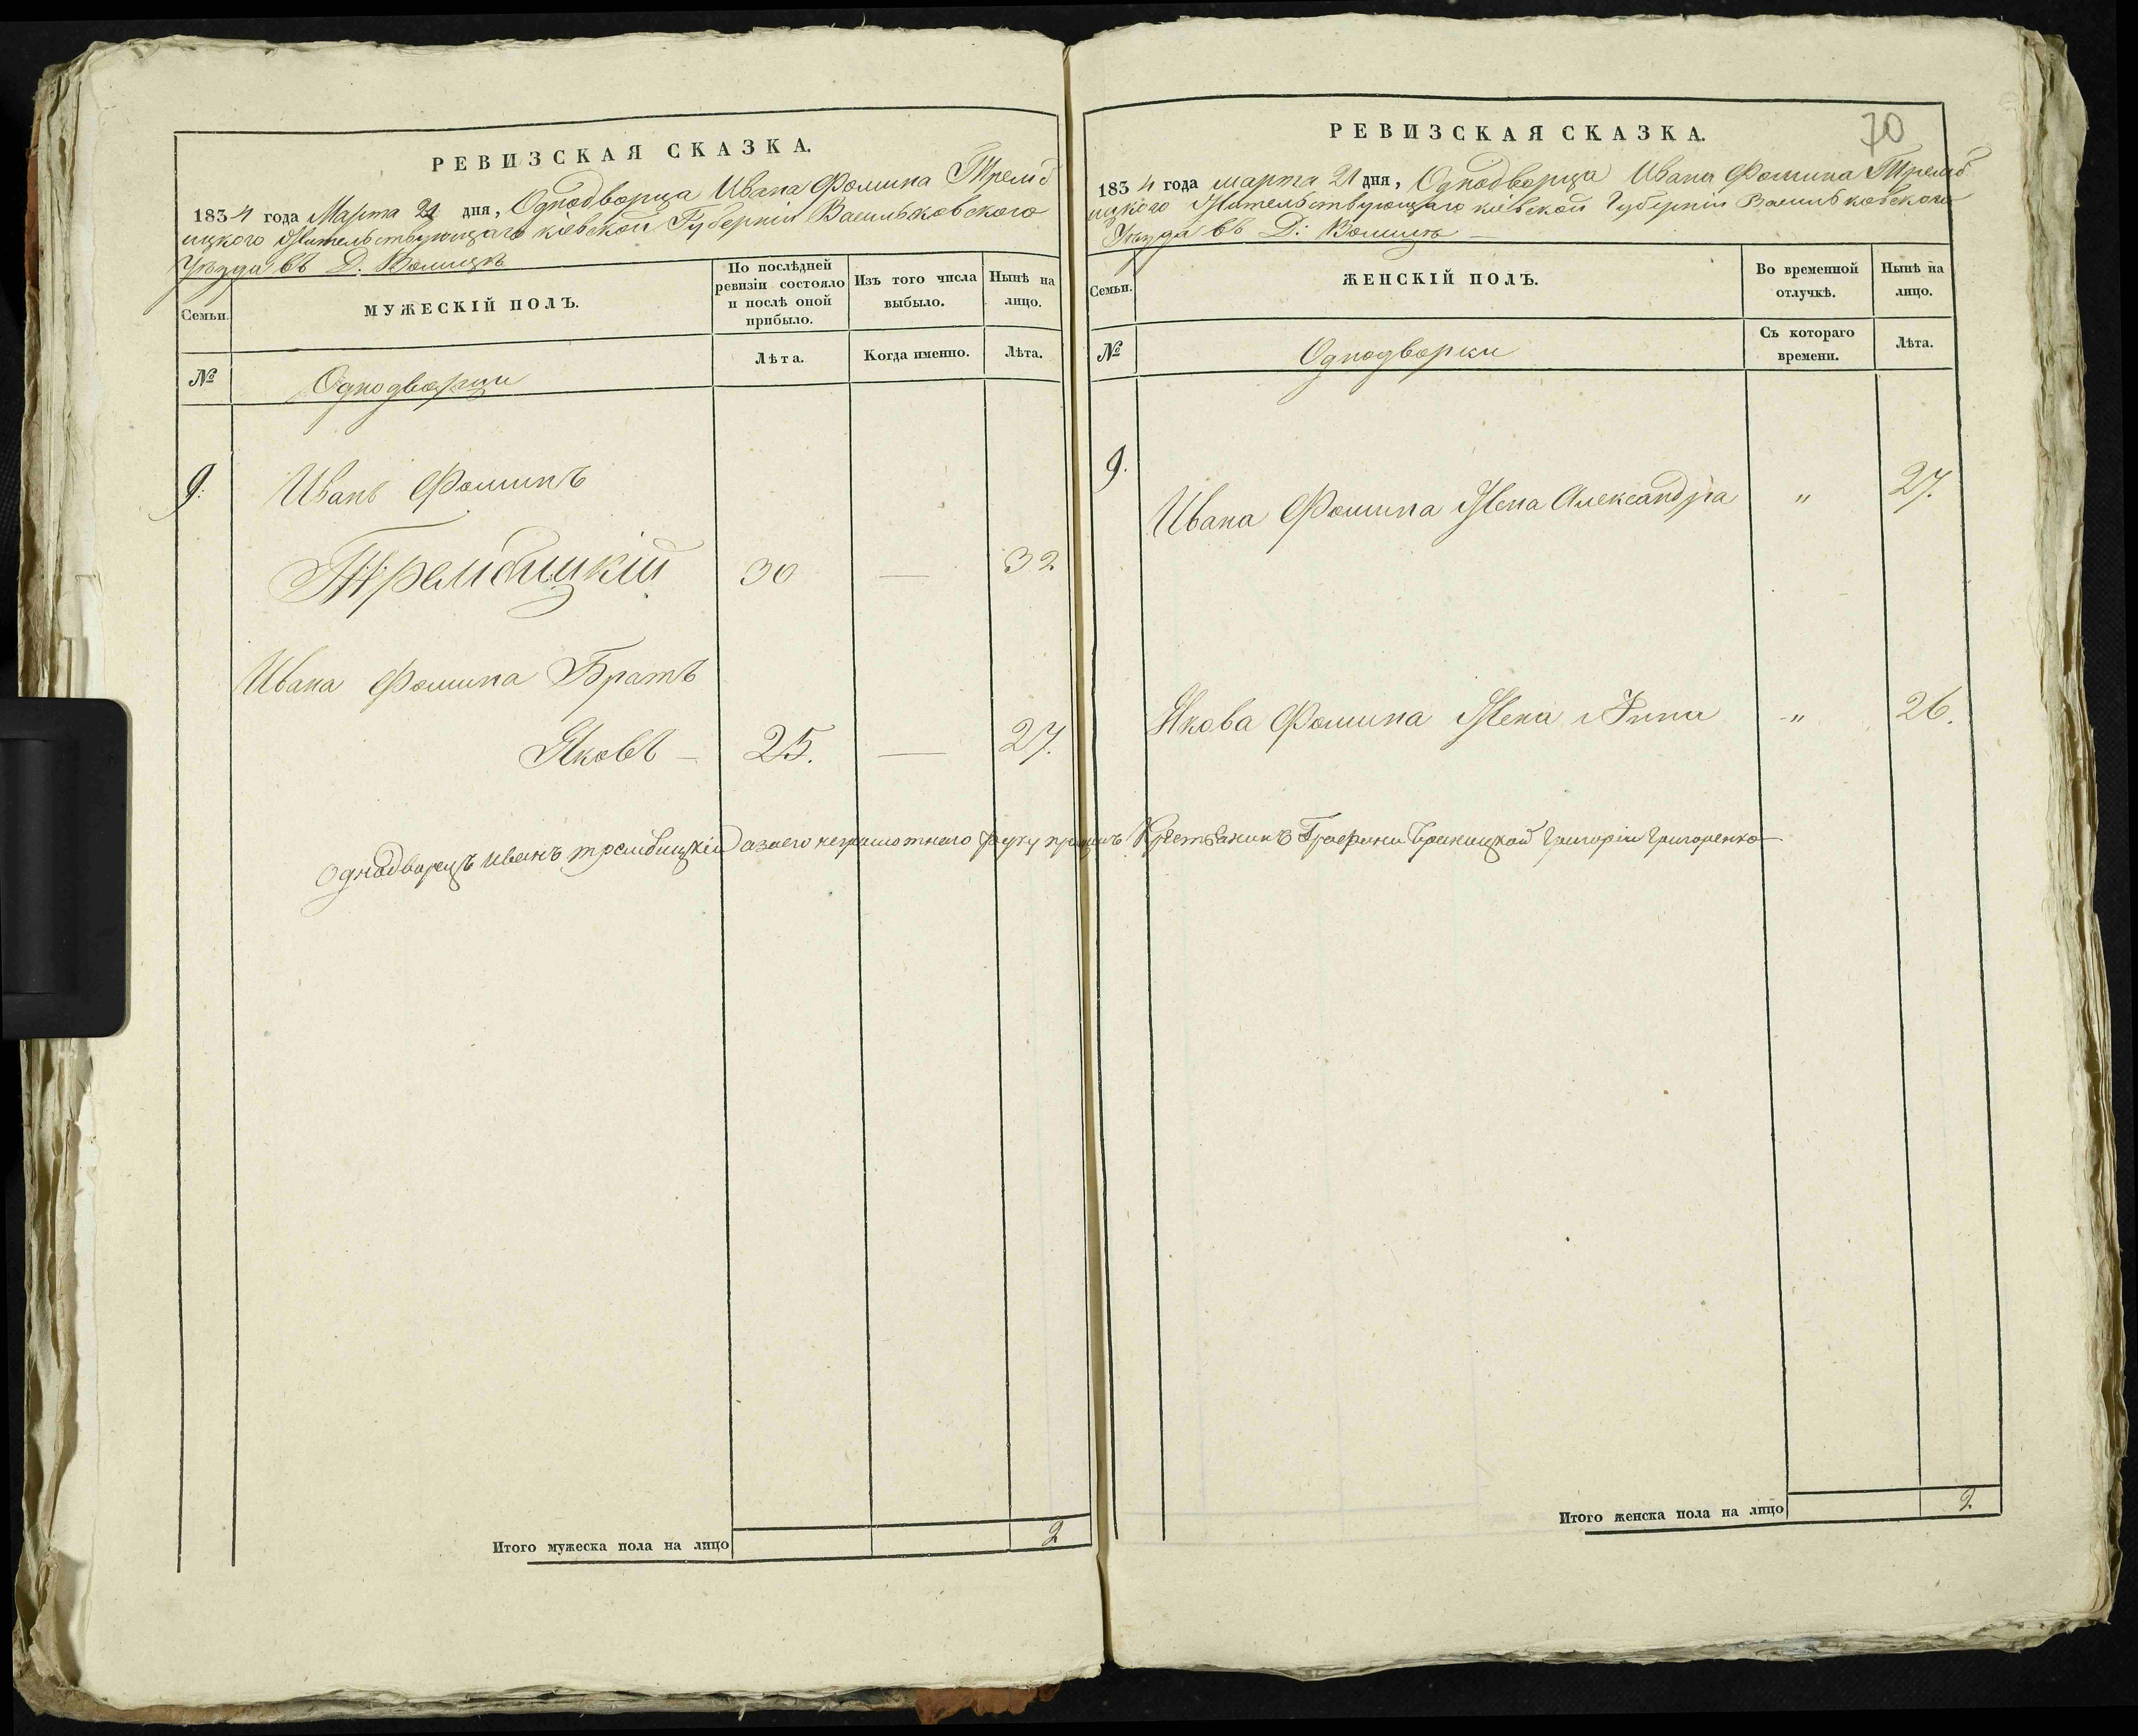 РЕВИЗСКАЯ СКАЗКА.
1834 года Марта 21 дня, Однодворца Ивана Фомина Тремб
ицкого Жительствующаго кіевской Губерніи Васильковскаго
Уѣзда въ Д. Волицѣ
Семьи.
МУЖЕСКІЙ ПОЛЪ.
По послѣдней
ревизіи состояло
и послѣ оной
прибыло.
Изъ того числа
выбыло.
Нынѣ на
лицо.
№
Однодворцы
Лѣта.
Когда именно.
Лѣта.
9.
Иванъ Фоминъ
Трембицкій 30 — 32
Ивана Фомина Братъ
Яковъ — 25. — 27.
Итого мужеска пола на лицо 2
70
РЕВИЗСКАЯ СКАЗКА.
1834 года марта 21 дня, Однодворца Ивана Фомина Тремб
ицкого Жительствующаго кіевской Губерніи Васильковскаго
Уѣзда въ Д: Волицѣ —
Семьи.
ЖЕНСКІЙ ПОЛЪ.
Во временной
отлучкѣ.
Нынѣ на
лицо.
№
Однодворки
Съ котораго
времени.
Лѣта.
9.
Ивана Фомина Жена Александра " 27.
Якова Фомина Жена Анна " 26.
Однодворецъ иванъ трембицкій азаего неграмотнаго руку приложилъ Крестьянинъ Графини Браницкой Григорій Григоренко
Итого женска пола на лицо 2